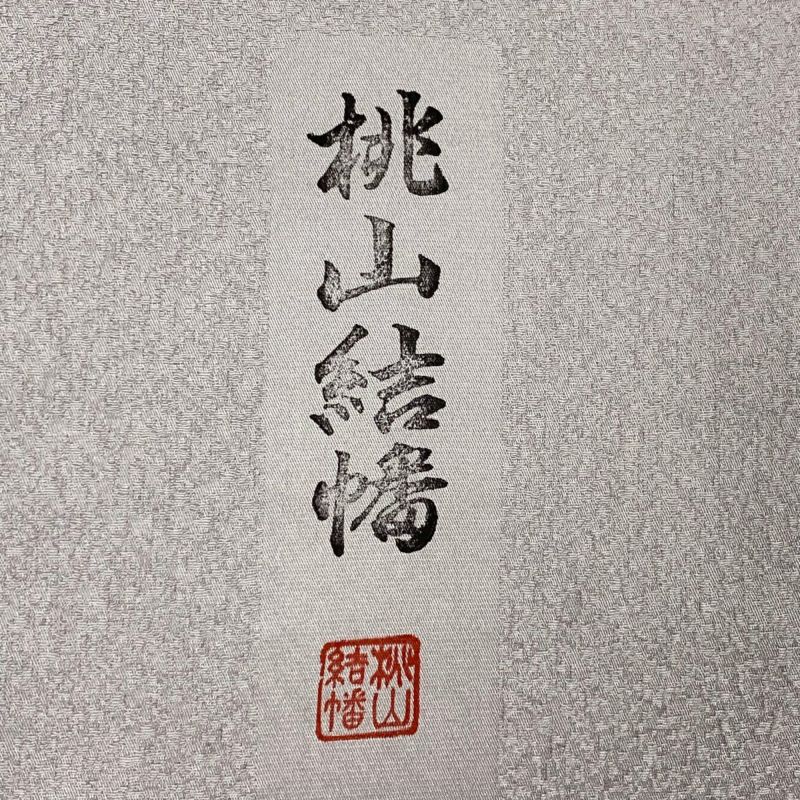 桃山結幡
桃山
結幡